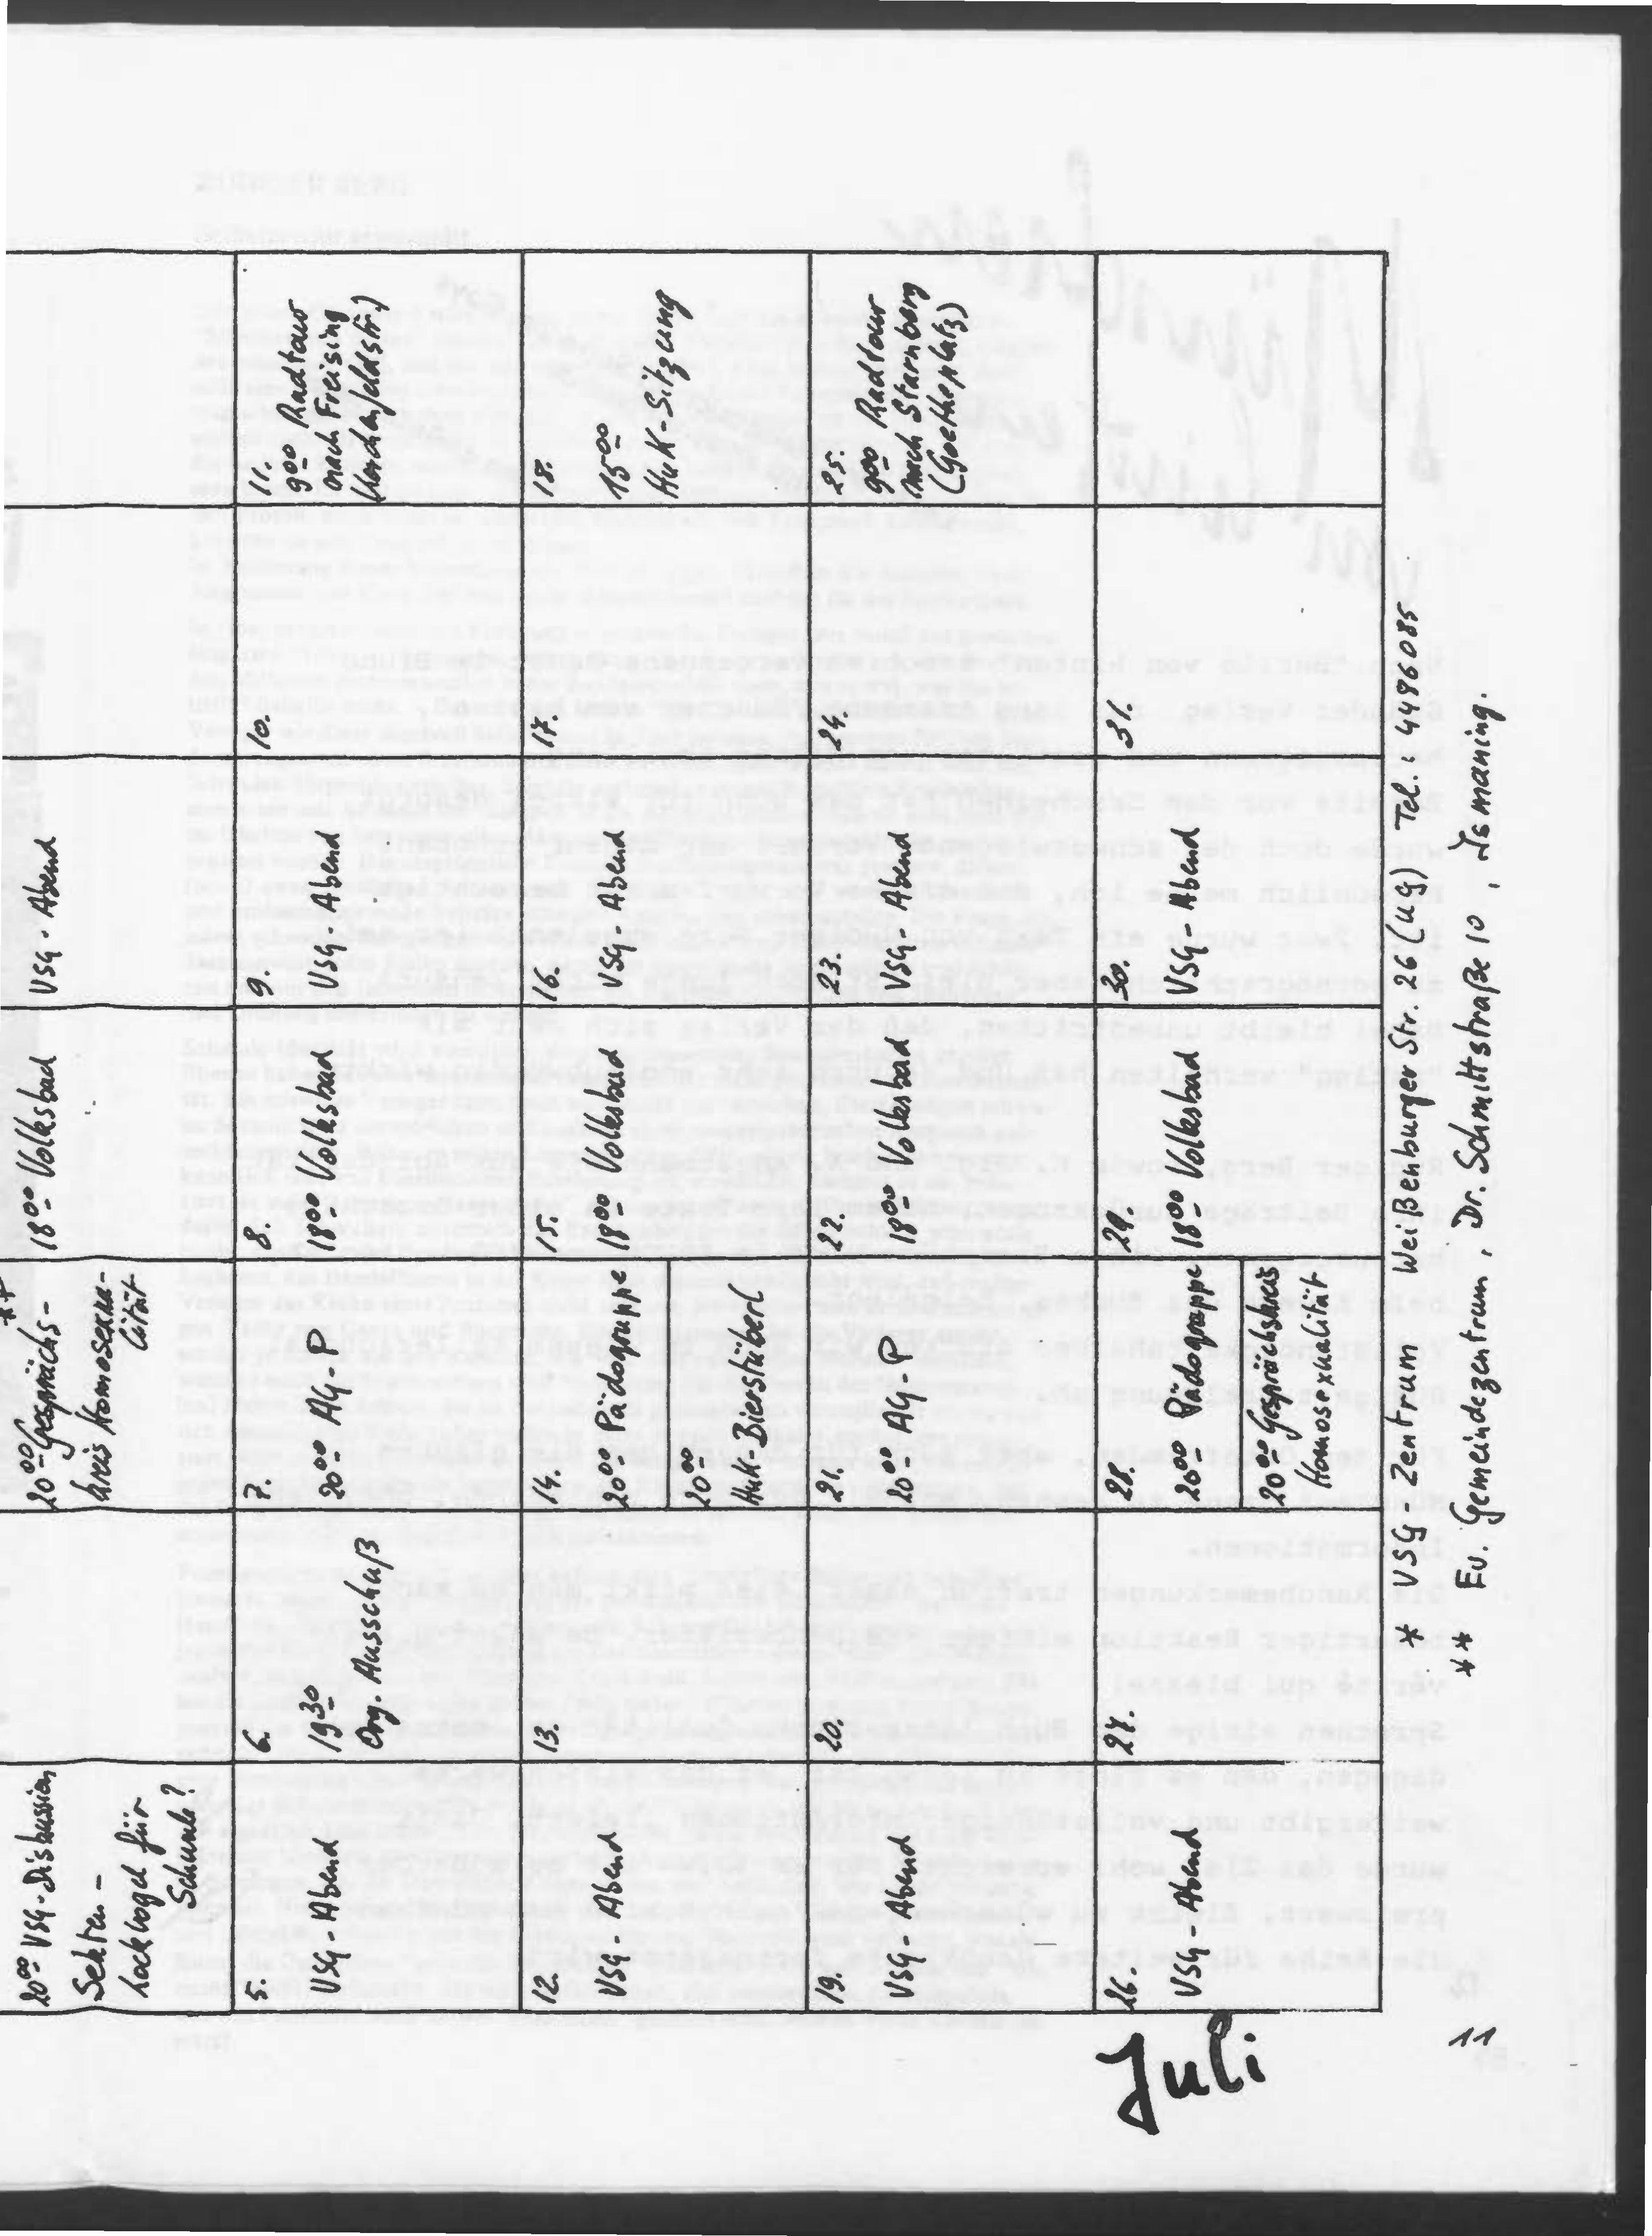 20⁰⁰ VSG-Diskussion
Sekten -
Lockvogel für
Schwule?
**
20⁰⁰ Gesprächs-
kreis Homosexua-
lität
18⁰⁰ Volksbad
VSG-Abend
5.
VSG-Abend
6.
19³⁰
Org. Ausschuß
7.
20⁰⁰ AG-P
8.
18⁰⁰ Volksbad
9.
VSG-Abend
10.
11.
9⁰⁰ Radtour
nach Freising
12.
VSG-Abend
13.
14.
20⁰⁰ Pädogruppe
20⁰⁰
HuK Bierstüberl
15.
18⁰⁰ Volksbad
16.
VSG-Abend
17.
18.
15⁰⁰
HuK-Sitzung
19.
VSG-Abend
20.
21.
20⁰⁰ AG-P
22.
18⁰⁰ Volksbad
23.
VSG-Abend
24.
25.
9⁰⁰ Radtour
nach Starnberg
(Goetheplatz)
Juli
26.
VSG-Abend
27.
28.
20⁰⁰ Pädogruppe
20⁰⁰ Gesprächskreis
Homosexualität
29.
18⁰⁰ Volksbad
30.
VSG-Abend
31.
* VSG-Zentrum - Weißenburger Str. 26 (UG) Tel.: 4486085
** Ev. Gemeindezentrum, Dr. Schmittstraße 10, Ismaning.
11